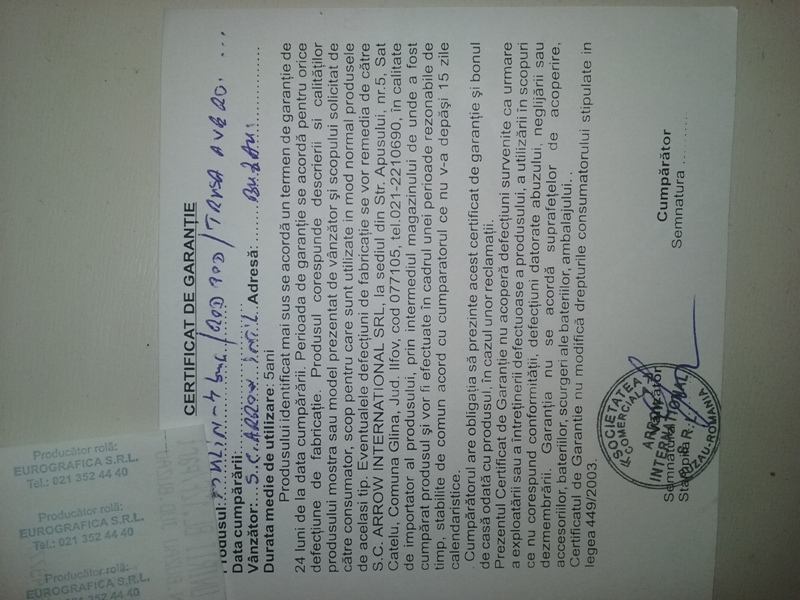 CERTIFICAT DE GARANȚIE
Produsul:
Data cumpărării:
Vânzător: S.C. ARROW INT'L. Adresă: Buzău
Durata medie de utilizare: 5ani
Produsului identificat mai sus se acordă un termen de garanție de
24 luni de la data cumpărării. Perioada de garanție se acordă pentru orice
defecțiune de fabricație. Produsul corespunde descrierii si calităților
produsului mostra sau model prezentat de vânzător și scopului solicitat de
către consumator, scop pentru care sunt utilizate in mod normal produsele
de același tip. Eventualele defecțiuni de fabricație se vor remedia de către
S.C. ARROW INTERNATIONAL SRL, la sediul din Str. Apusului, nr.5, Sat
Catelu, Comuna Glina, Jud. Ilfov, cod 077105, tel.021-2210690, în calitate
de importator al produsului, prin intermediul magazinului de unde a fost
cumpărat produsul și vor fi efectuate în cadrul unei perioade rezonabile de
timp, stabilite de comun acord cu cumparatorul ce nu v-a depăși 15 zile
calendaristice.
Cumpărătorul are obligația să prezinte acest certificat de garanție și bonul
de casă odată cu produsul, în cazul unor reclamații.
Prezentul Certificat de Garanție nu acoperă defecțiuni survenite ca urmare
a exploatării sau a întreținerii defectuoase a produsului, a utilizării în scopuri
ce nu corespund conformității, defecțiuni datorate abuzului, neglijării sau
dezmembrării. Garanția nu se acordă suprafețelor de acoperire,
accesoriilor, bateriilor, scurgeri ale bateriilor, ambalajului...
Certificatul de Garantie nu modifică drepturile consumatorului stipulate in
legea 449/2003.
Cumpărător
Semnatura
SOCIETATEA
COMERCIALA
ARROW
INTERNATIONAL
S.R.L.
BUZAU-ROMANIA
Producător rolă:
EUROGRAFICA S.R.L.
Tel.: 021 352 44 40
Producător rolă:
EUROGRAFICA S.R.L.
Tel.: 021 352 44 40
Producător rolă:
EUROGRAFICA S.R.L.
352 44 40